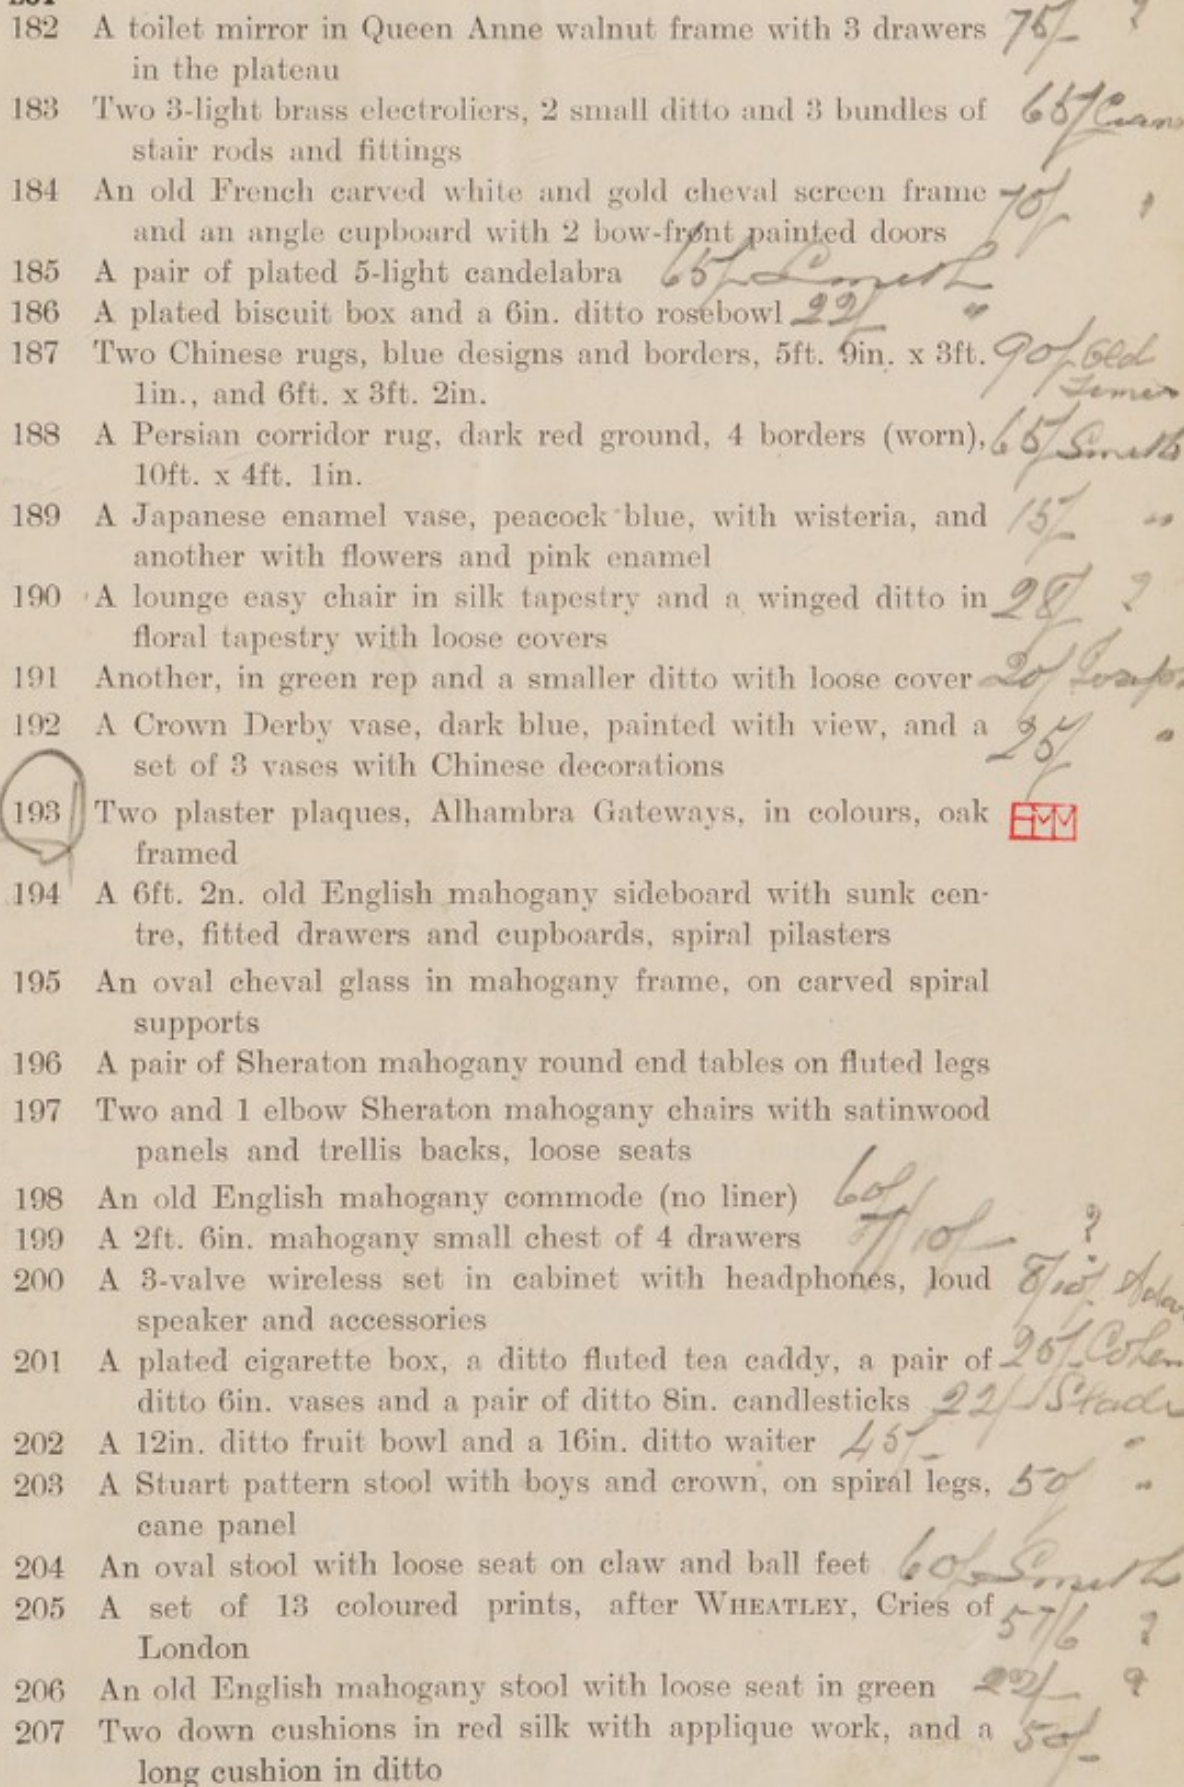 182 A toilet mirror in Queen Anne walnut frame with 3 drawers 75/- ?
in the plateau
183 Two 3-light brass electroliers, 2 small ditto and 3 bundles of 65/
stair rods and fittings
184 An old French carved white and gold cheval screen frame 70/
and an angle cupboard with 2 bow-front painted doors
185 A pair of plated 5-light candelabra 65/- Smith
186 A plated biscuit box and a 6in. ditto rosebowl 22/ "
187 Two Chinese rugs, blue designs and borders, 5ft. 9in. x 3ft. 90/- Old
1in., and 6ft. x 3ft. 2in. Times
188 A Persian corridor rug, dark red ground, 4 borders (worn), 65/ Smith
10ft. x 4ft. 1in.
189 A Japanese enamel vase, peacock blue, with wisteria, and 15/- "
another with flowers and pink enamel
190 A lounge easy chair in silk tapestry and a winged ditto in 28/ ?
floral tapestry with loose covers
191 Another, in green rep and a smaller ditto with loose cover 20/
192 A Crown Derby vase, dark blue, painted with view, and a 25/ "
set of 3 vases with Chinese decorations
193 Two plaster plaques, Alhambra Gateways, in colours, oak
framed
194 A 6ft. 2n. old English mahogany sideboard with sunk cen-
tre, fitted drawers and cupboards, spiral pilasters
195 An oval cheval glass in mahogany frame, on carved spiral
supports
196 A pair of Sheraton mahogany round end tables on fluted legs
197 Two and 1 elbow Sheraton mahogany chairs with satinwood
panels and trellis backs, loose seats
198 An old English mahogany commode (no liner) 60/
199 A 2ft. 6in. mahogany small chest of 4 drawers 7/10/- ?
200 A 3-valve wireless set in cabinet with headphones, loud 8/10/
speaker and accessories
201 A plated cigarette box, a ditto fluted tea caddy, a pair of 25/- Cohen
ditto 6in. vases and a pair of ditto 8in. candlesticks 22/-
202 A 12in. ditto fruit bowl and a 16in. ditto waiter 45/- "
203 A Stuart pattern stool with boys and crown, on spiral legs, 50/ "
cane panel
204 An oval stool with loose seat on claw and ball feet 60/- Smith
205 A set of 13 coloured prints, after WHEATLEY, Cries of 57/6 ?
London
206 An old English mahogany stool with loose seat in green 22/- ?
207 Two down cushions in red silk with applique work, and a 50/-
long cushion in ditto